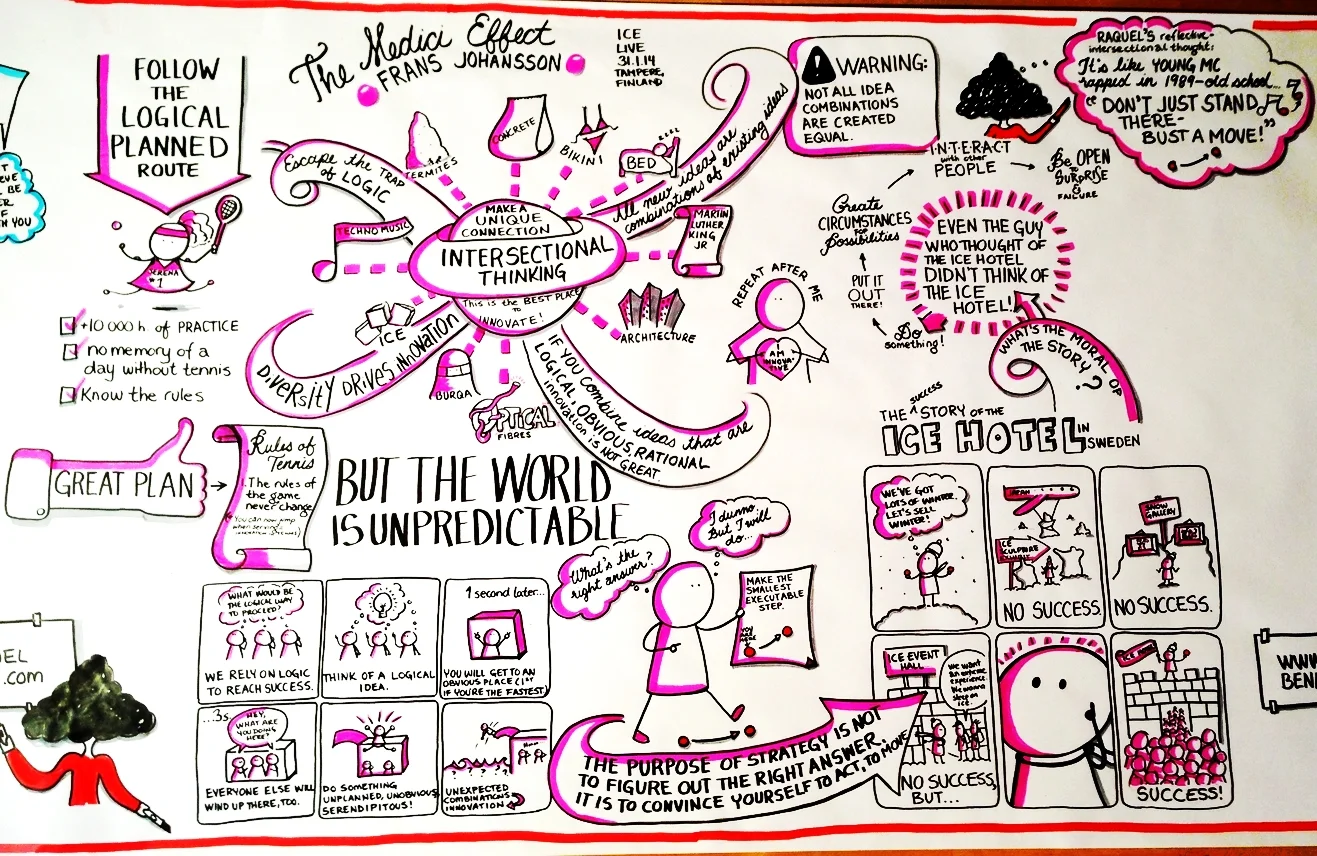 The Medici Effect
FRANS JOHANSSON
ICE
LIVE
31.1.14
TAMPERE,
FINLAND
FOLLOW
THE
LOGICAL
PLANNED
ROUTE
SERENA
#1
+10 000 h. of PRACTICE
no memory of a
day without tennis
Know the rules
GREAT PLAN
Rules of
Tennis
1. The rules of
the game
never change
(You can now jump
when serving-
BUT THE WORLD
IS UNPREDICTABLE
Escape the TRAP
of LOGIC
TERMITES
CONCRETE
BIKINI
BED
ZZZZ
All new ideas are
combinations of existing ideas
TECHNO MUSIC
MAKE A
UNIQUE
CONNECTION
INTERSECTIONAL
THINKING
This is the BEST PLACE
TO
INNOVATE!
MARTIN
LUTHER
KING
JR
ICE
ARCHITECTURE
DIVERSITY DRIVES INNOVATION
BURQA
OPTICAL
FIBRES
IF YOU COMBINE ideas that are
LOGICAL, OBVIOUS, RATIONAL
innovation is NOT GREAT.
REPEAT AFTER ME
I
AM
INNOVA-
TIVE
WARNING:
NOT ALL IDEA
COMBINATIONS
ARE CREATED
EQUAL.
RAQUEL'S reflective-
intersectional thought:
It's like YOUNG MC
rapped in 1989-old school...
"DON'T JUST STAND
THERE-
BUST A MOVE!"
INTERACT
with other
PEOPLE
Be OPEN
TO
SURPRISE
&
FAILURE
Create
CIRCUMSTANCES
FOR
possibilities
PUT IT
OUT
THERE!
Do
something!
EVEN THE GUY
WHO THOUGHT OF
THE ICE HOTEL
DIDN'T THINK OF
THE ICE
HOTEL!
WHAT'S THE MORAL OF
THE STORY?
THE success STORY OF THE
ICE HOTEL IN
SWEDEN
WE'VE GOT
LOTS OF WINTER.
LET'S SELL
WINTER!
JAPAN
ICE
SCULPTURE
EXHIBIT
NO SUCCESS.
SNOW
GALLERY
NO SUCCESS.
ICE EVENT
HALL
We want
an extreme
experience.
We wanna
sleep on
ice.
NO SUCCESS,
BUT...
ICE HOTEL
SUCCESS!
WHAT WOULD BE
THE LOGICAL WAY
TO PROCEED?
WE RELY ON LOGIC
TO REACH SUCCESS.
THINK OF A LOGICAL
IDEA.
1 second later...
YOU WILL GET TO AN
OBVIOUS PLACE (1ST
IF YOU'RE THE FASTEST)
...3s
HEY,
WHAT ARE
YOU DOING
HERE?
EVERYONE ELSE WILL
WIND UP THERE, TOO.
DO SOMETHING
UNPLANNED, UNOBVIOUS,
SERENDIPITOUS!
UNEXPECTED
COMBINATIONS
INNOVATION
What's the
right answer?
I dunno
but I will
do...
MAKE THE
SMALLEST
EXECUTABLE
STEP.
YOU
ARE
HERE
THE PURPOSE OF STRATEGY IS NOT
TO FIGURE OUT THE RIGHT ANSWER.
IT IS TO CONVINCE YOURSELF TO ACT, TO MOVE
EL
.com
WWW
BEN